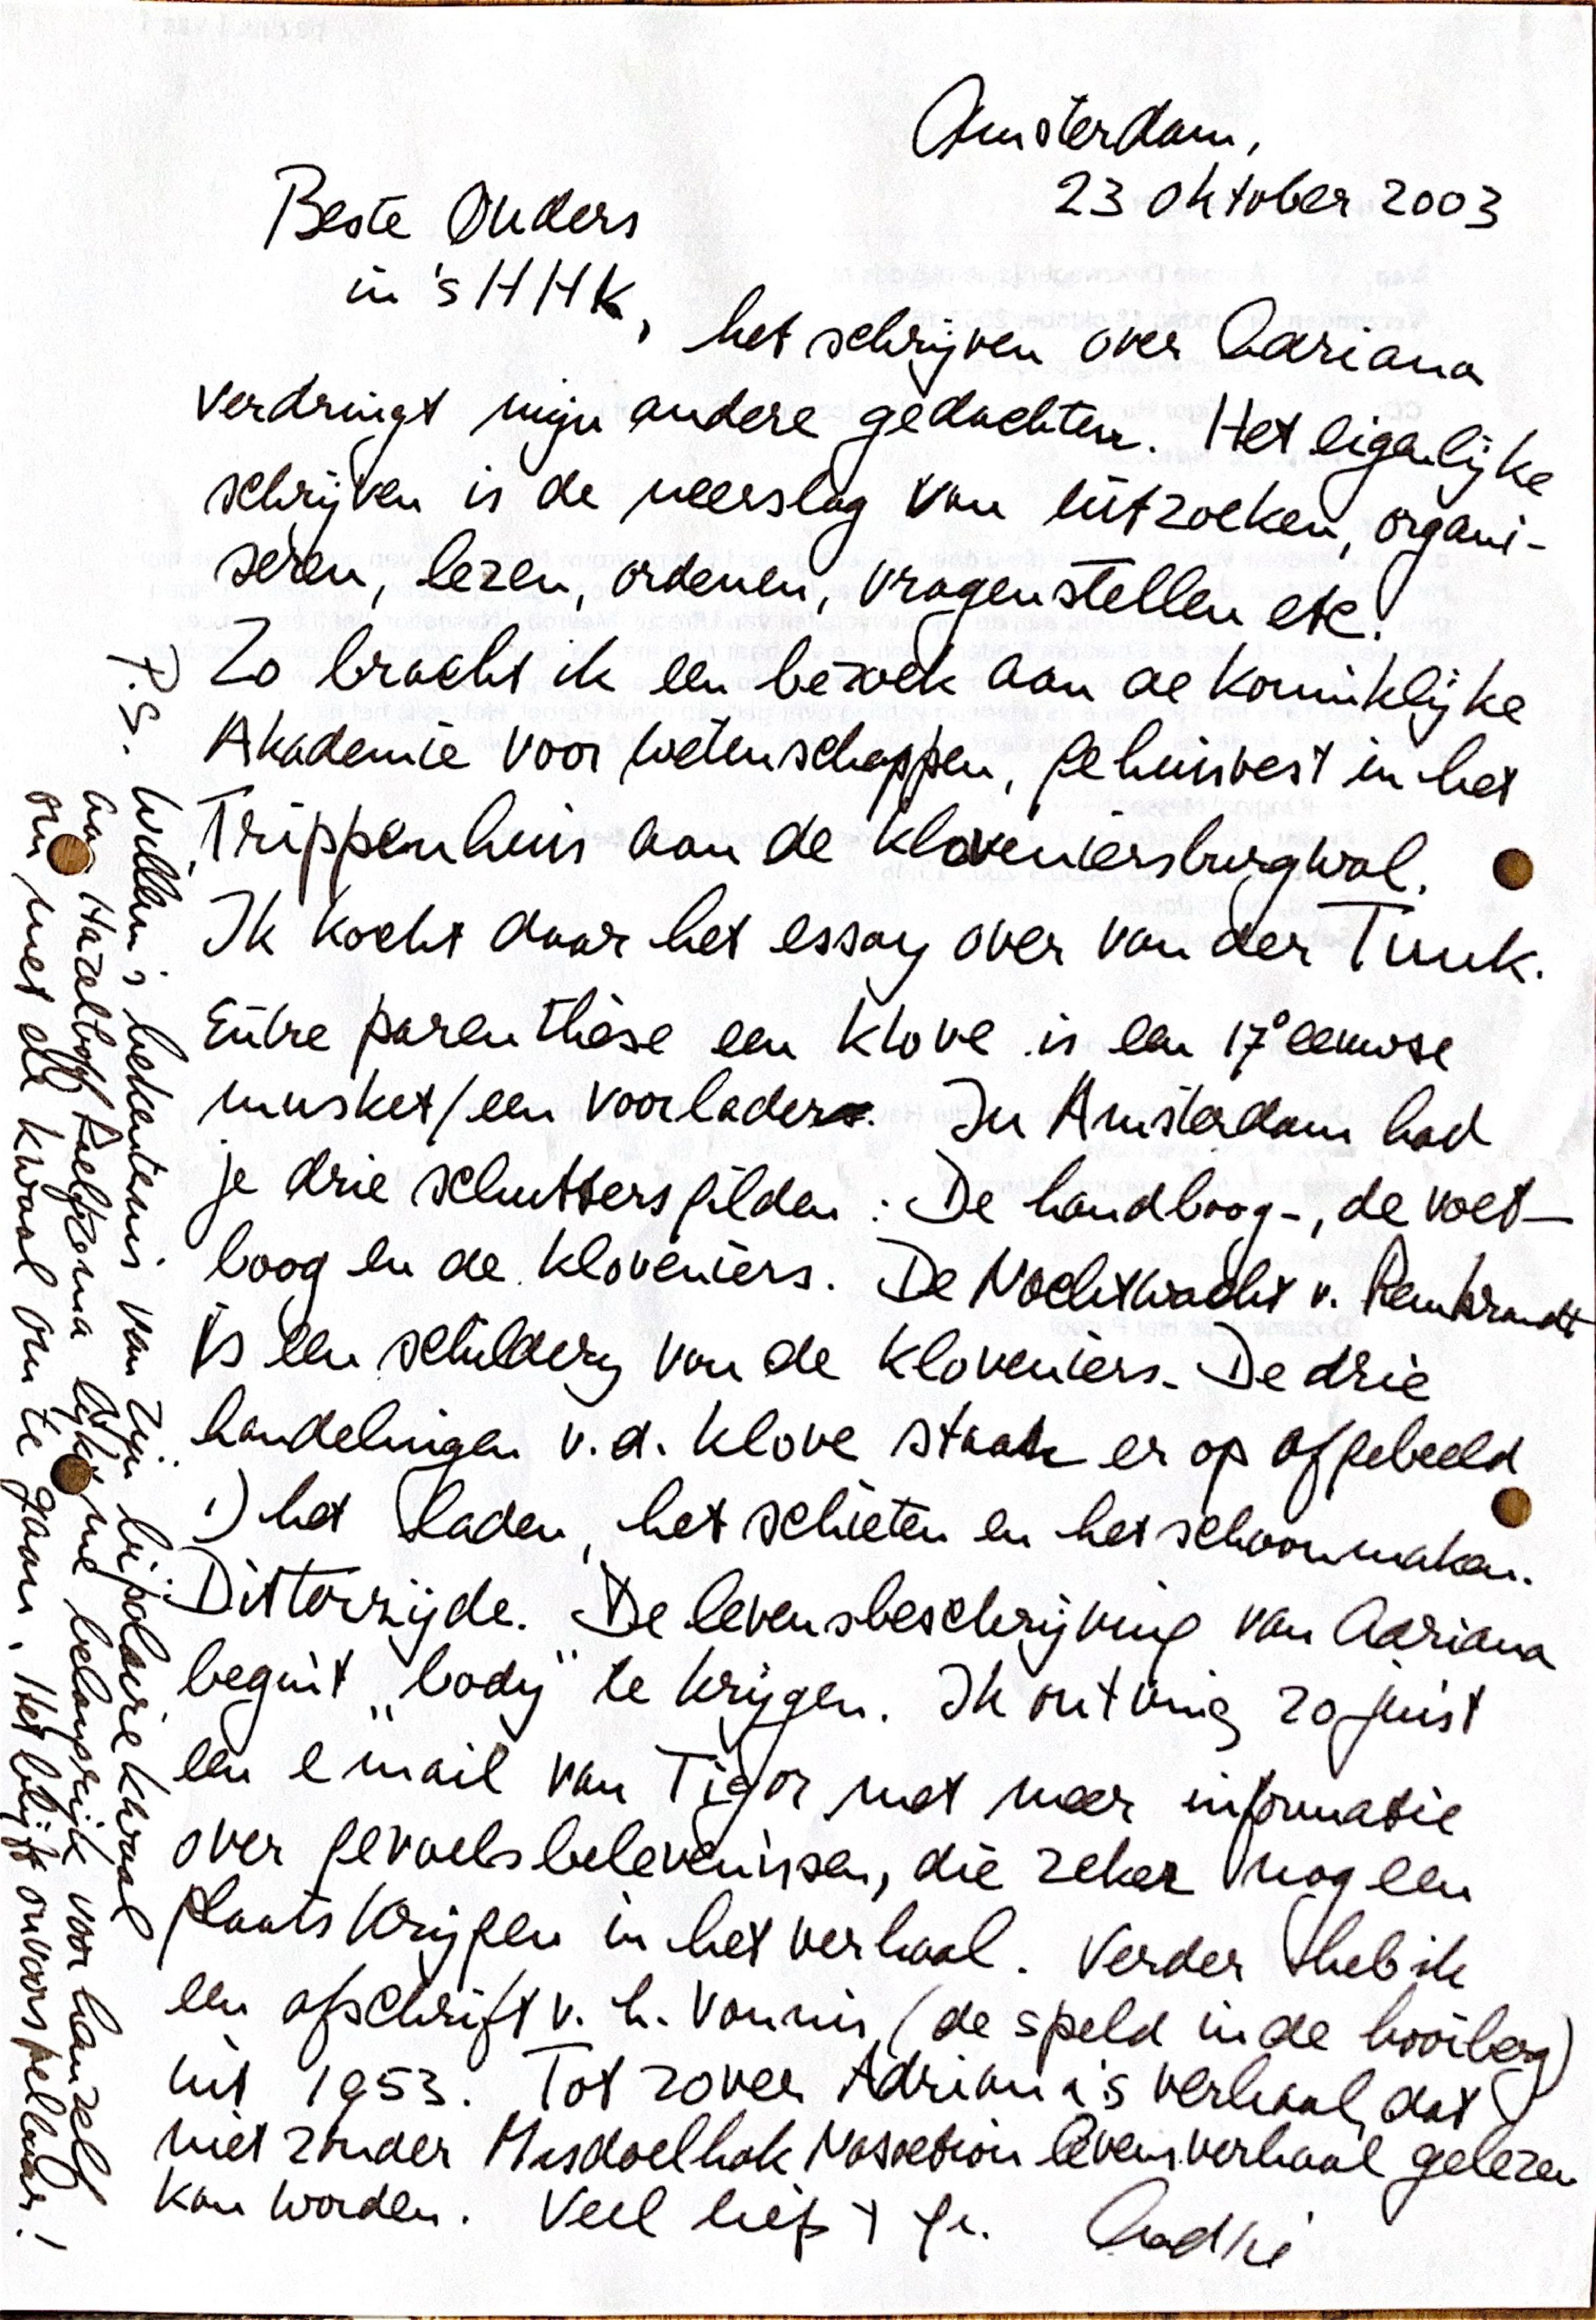 Amsterdam,
23 oktober 2003
Beste Ouders
in 's HHK,
het schrijven over Adriana
verdringt mijn andere gedachten. Het eigenlijke
schrijven is de neerslag van uitzoeken, organi-
seren, lezen, ordenen, vragen stellen etc.
Zo bracht ik een bezoek aan de Koninklijke
Akademie voor Wetenschappen, gehuisvest in het
Trippenhuis aan de Kloveniersburgwal.
Ik kocht daar het essay over van der Tuuk.
Entre parenthèse een klove is een 17e eeuwse
musket/een voorlader. In Amsterdam had
je drie schuttersgilden: De handboog-, de voet-
boog en de kloveniers. De Nachtwacht v. Rembrandt
is een schildery van de kloveniers. De drie
handelingen v.d. klove staan er op afgebeeld
:) het laden, het schieten en het schoonmaken.
Dit terzijde. De levensbeschrijving van Adriana
begint "body" te krijgen. Ik ontving zojuist
een email van Tigor met meer informatie
over gevoelsbelevenissen, die zeker nog een
plaats krijgen in het verhaal. Verder heb ik
een afschrift v. h. vonnis (de speld in de hooiberg)
uit 1953. Tot zover Adriana's verhaal, dat
niet zonder Nasoetion levensverhaal gelezen
kan worden. Veel liefs + gr. Aadje
P.S. Willem's bekentenis van zijn bipolaire kwaal
aan Hazelhoff Roelfzema lijkt me belangrijk voor hemzelf
om met die kwaal om te gaan. Het blijft onvoorspelbaar!